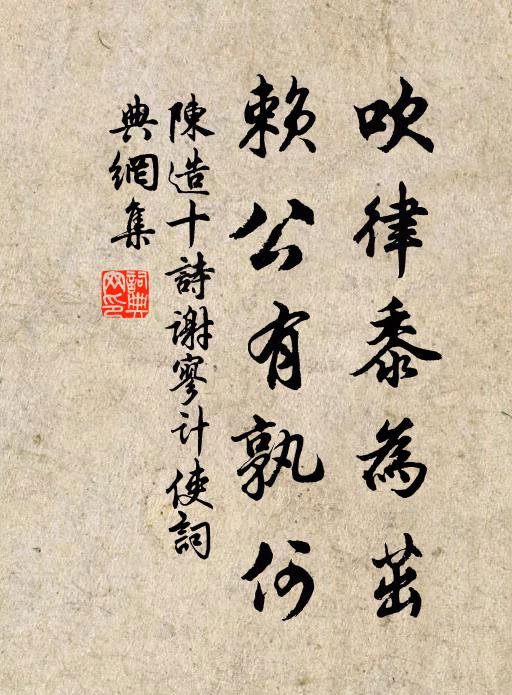 吹律黍為茁
賴公有孰何
陳造十詩謝寥計使詞
典網集
詞典網印